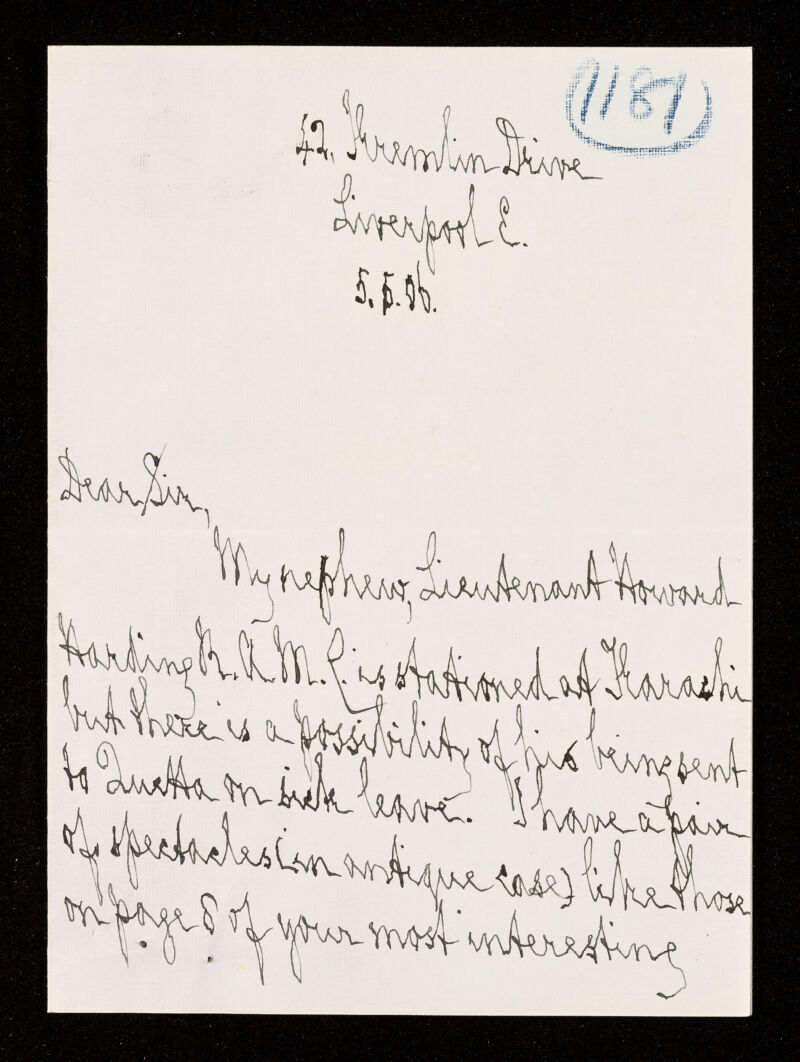 1187
42, Kremlin Drive
Liverpool E.
5.5.06.
Dear Sir,
My nephew, Lieutenant Howard
Harding R.A.M.C. is stationed at Karachi
but there is a possibility of his being sent
to Quetta on sick leave. I have a pair
of spectacles (in antique case) like those
on page 8 of your most interesting